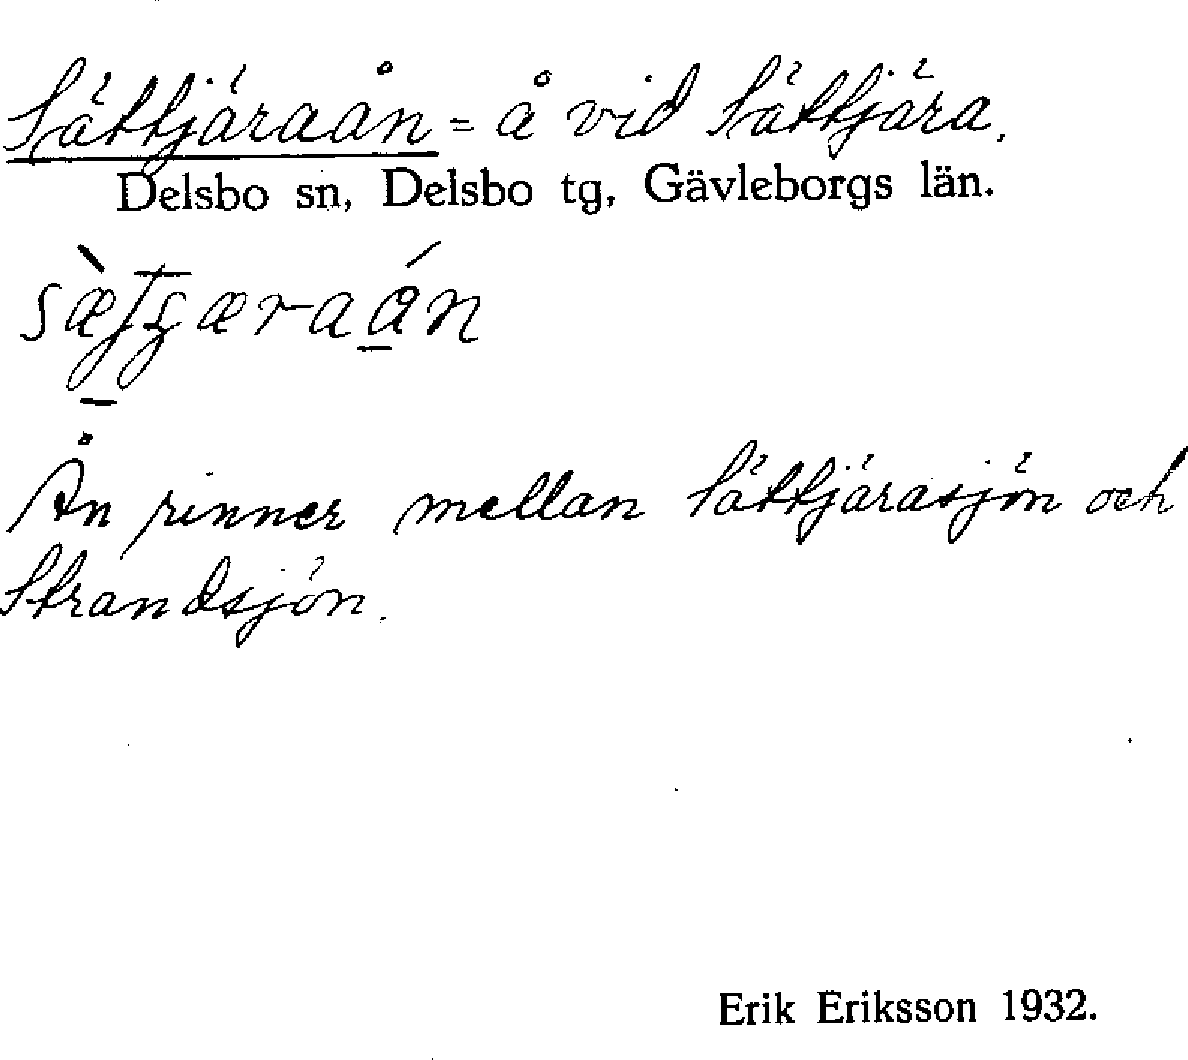 Sättjäraån = å vid Sättjära.
Delsbo sn, Delsbo tg, Gävleborgs län.
Ån rinner mellan Sättjärasjön och
Strandsjön.
Erik Eriksson 1932.